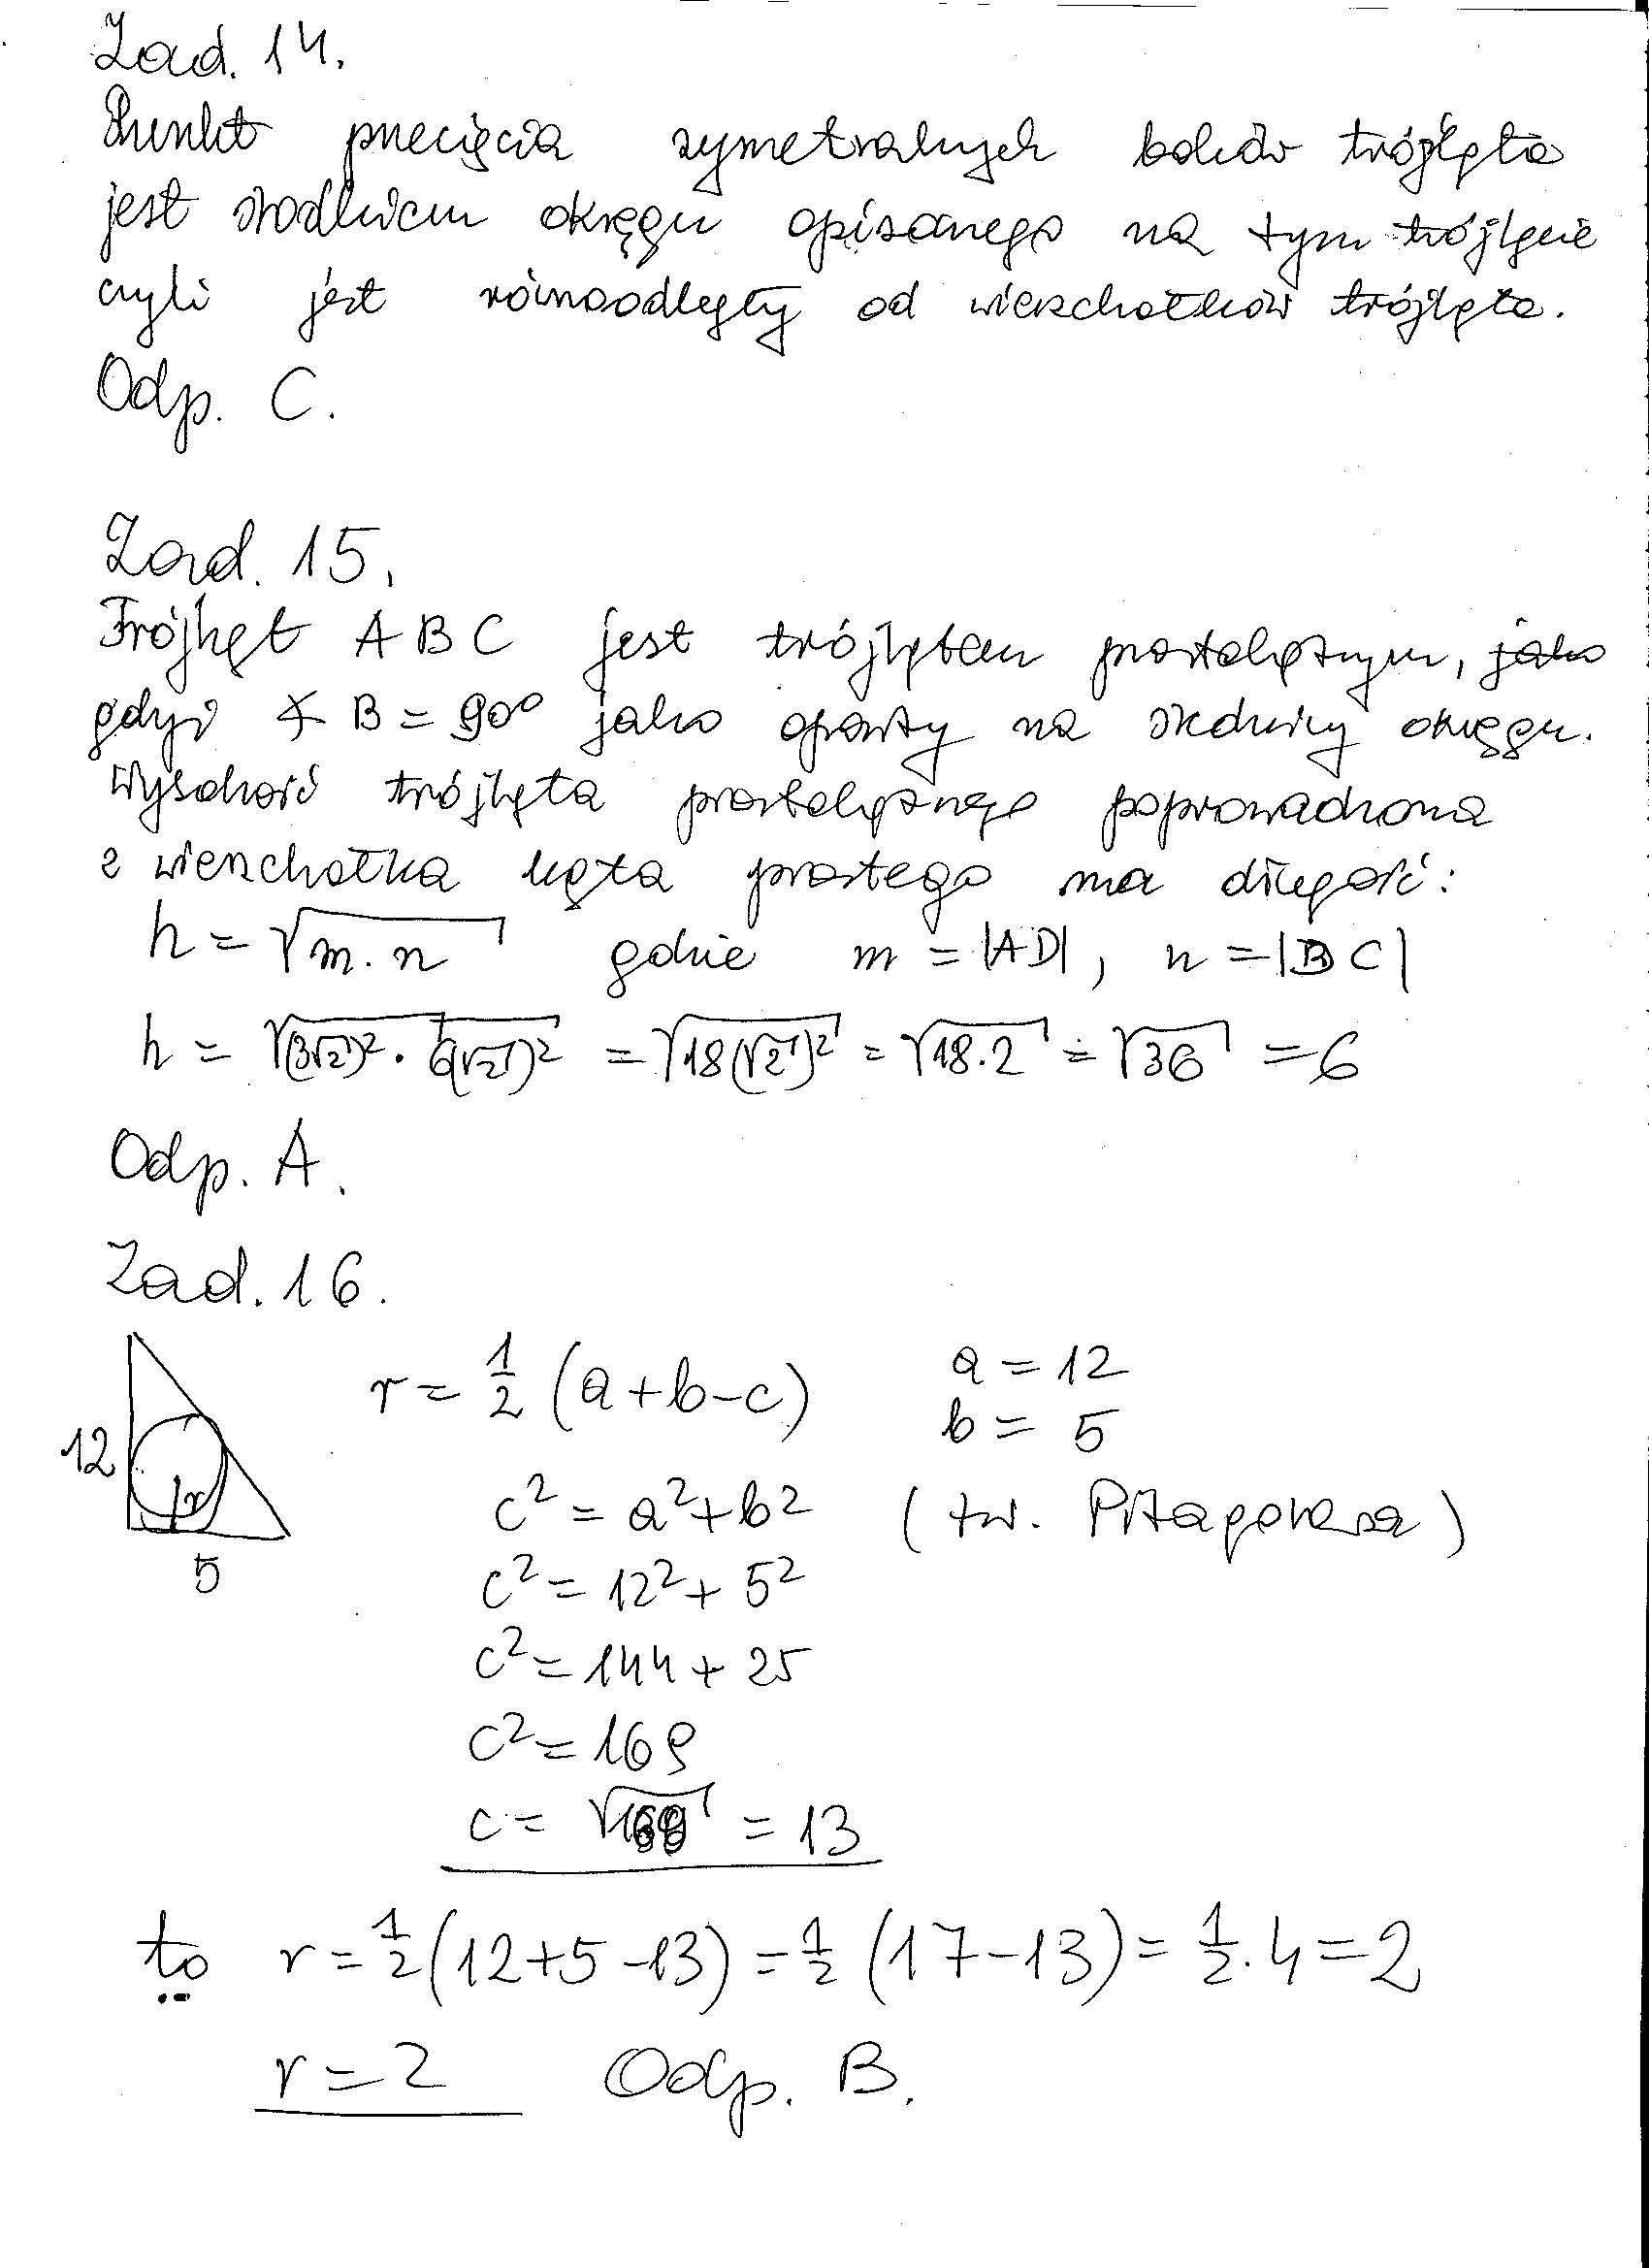 Zad. 14.
Punkt przecięcia symetralnych boków trójkąta
jest środkiem okręgu opisanego na tym trójkącie
czyli jest równoodległy od wierzchołków trójkąta.
Odp. C.
Zad. 15.
Trójkąt ABC jest trójkątem prostokątnym, jako
gdyż ∢ B = 90° jako oparty na średnicy okręgu.
Wysokość trójkąta prostokątnego poprowadzona
z wierzchołka kąta prostego ma długość:
h = √(m·n) gdzie m = |AD|, n = |BC|
h = √((3√2)² · 6(√2)²) = √(18(√2)²) = √(18·2) = √36 = 6
Odp. A.
Zad. 16.
r = 1/2 (a+b-c) a = 12
b = 5
12
c² = a² + b² (tw. Pitagorasa)
r
5
c² = 12² + 5²
c² = 144 + 25
c² = 169
c = √169 = 13
to r = 1/2 (12+5-13) = 1/2 (17-13) = 1/2 · 4 = 2
r = 2 Odp. B.